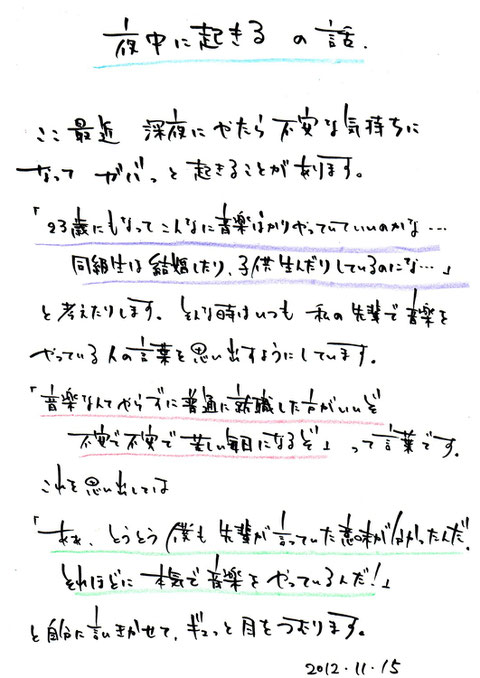 夜中に起きる の 話.
ここ 最近 深夜に やたら 不安な気持ちに
なって ガバっと 起きることが あります。
「23歳にもなって こんなに 音楽ばかりやっていていいのかな…
同級生は 結婚したり、子供生んだりしているのにな…」
と考えたりします。そんな時はいつも 私の 先輩で音楽を
やっている人の言葉を思い出すようにしています。
「音楽なんてやらずに普通に就職した方がいいぞ
不安で不安で 苦しい毎日になるぞ」って言葉です。
これを思い出しては
「ああ、とうとう 僕も 先輩が言っていた意味がわかったんだ。
それほどに 本気で 音楽を やっているんだ!」
と自分に言いきかせて、ギュっと目をつむります。
2012.11.15